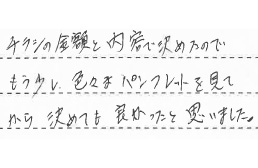 チラシの金額と内容で決めたので
もう少し、色々なパンフレットを見て
から決めても良かったと思いました。